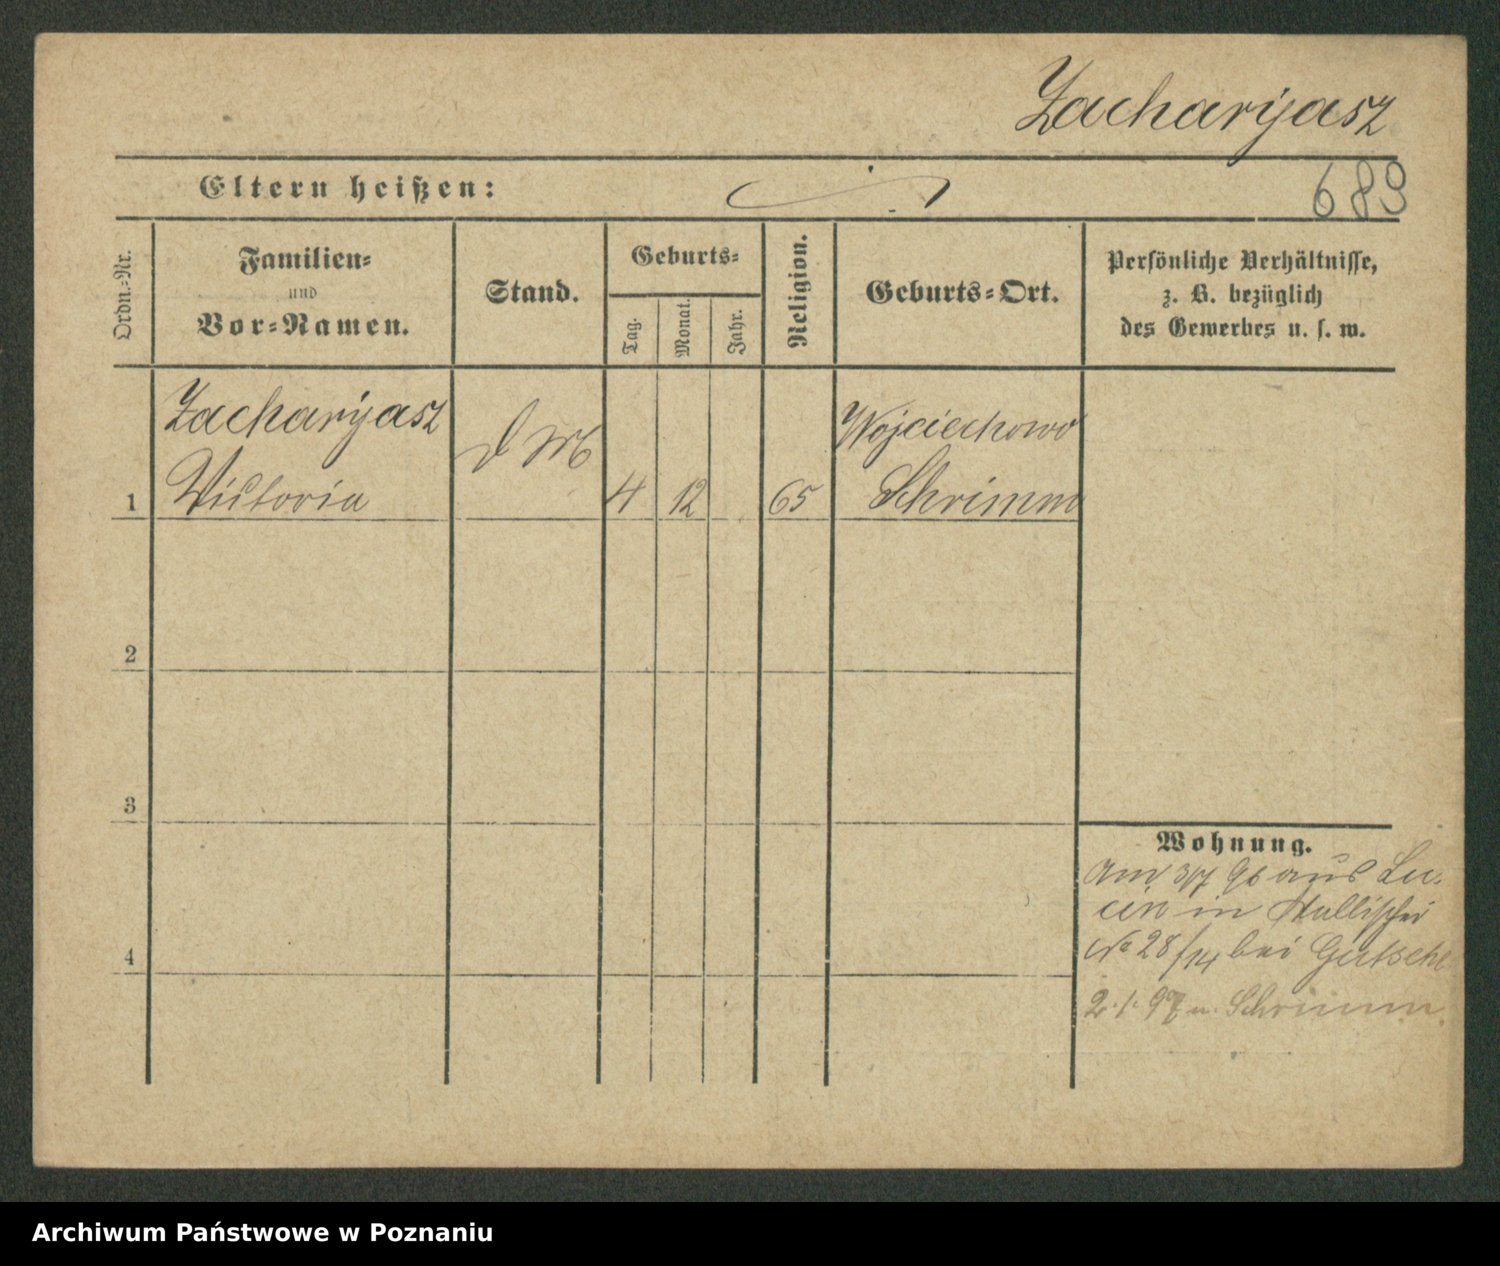 Zacharyasz
Eltern heißen:
689
Ordn.-Nr.
Familien-
und
Vor-Namen.
Stand.
Geburts-
Tag.
Monat.
Jahr.
Religion.
Geburts-Ort.
Persönliche Verhältnisse,
z. B. bezüglich
des Gewerbes u. s. w.
Zacharyasz
Victoria
D M
1
4 12 65
Wojciechowo
Schrimm
2
3
4
Wohnung.
Am 3/7 96 aus Lu-
cin in Wallischei
No 28/14 bei Gutsche
2. 1. 97 n. Schrimm.
Archiwum Państwowe w Poznaniu